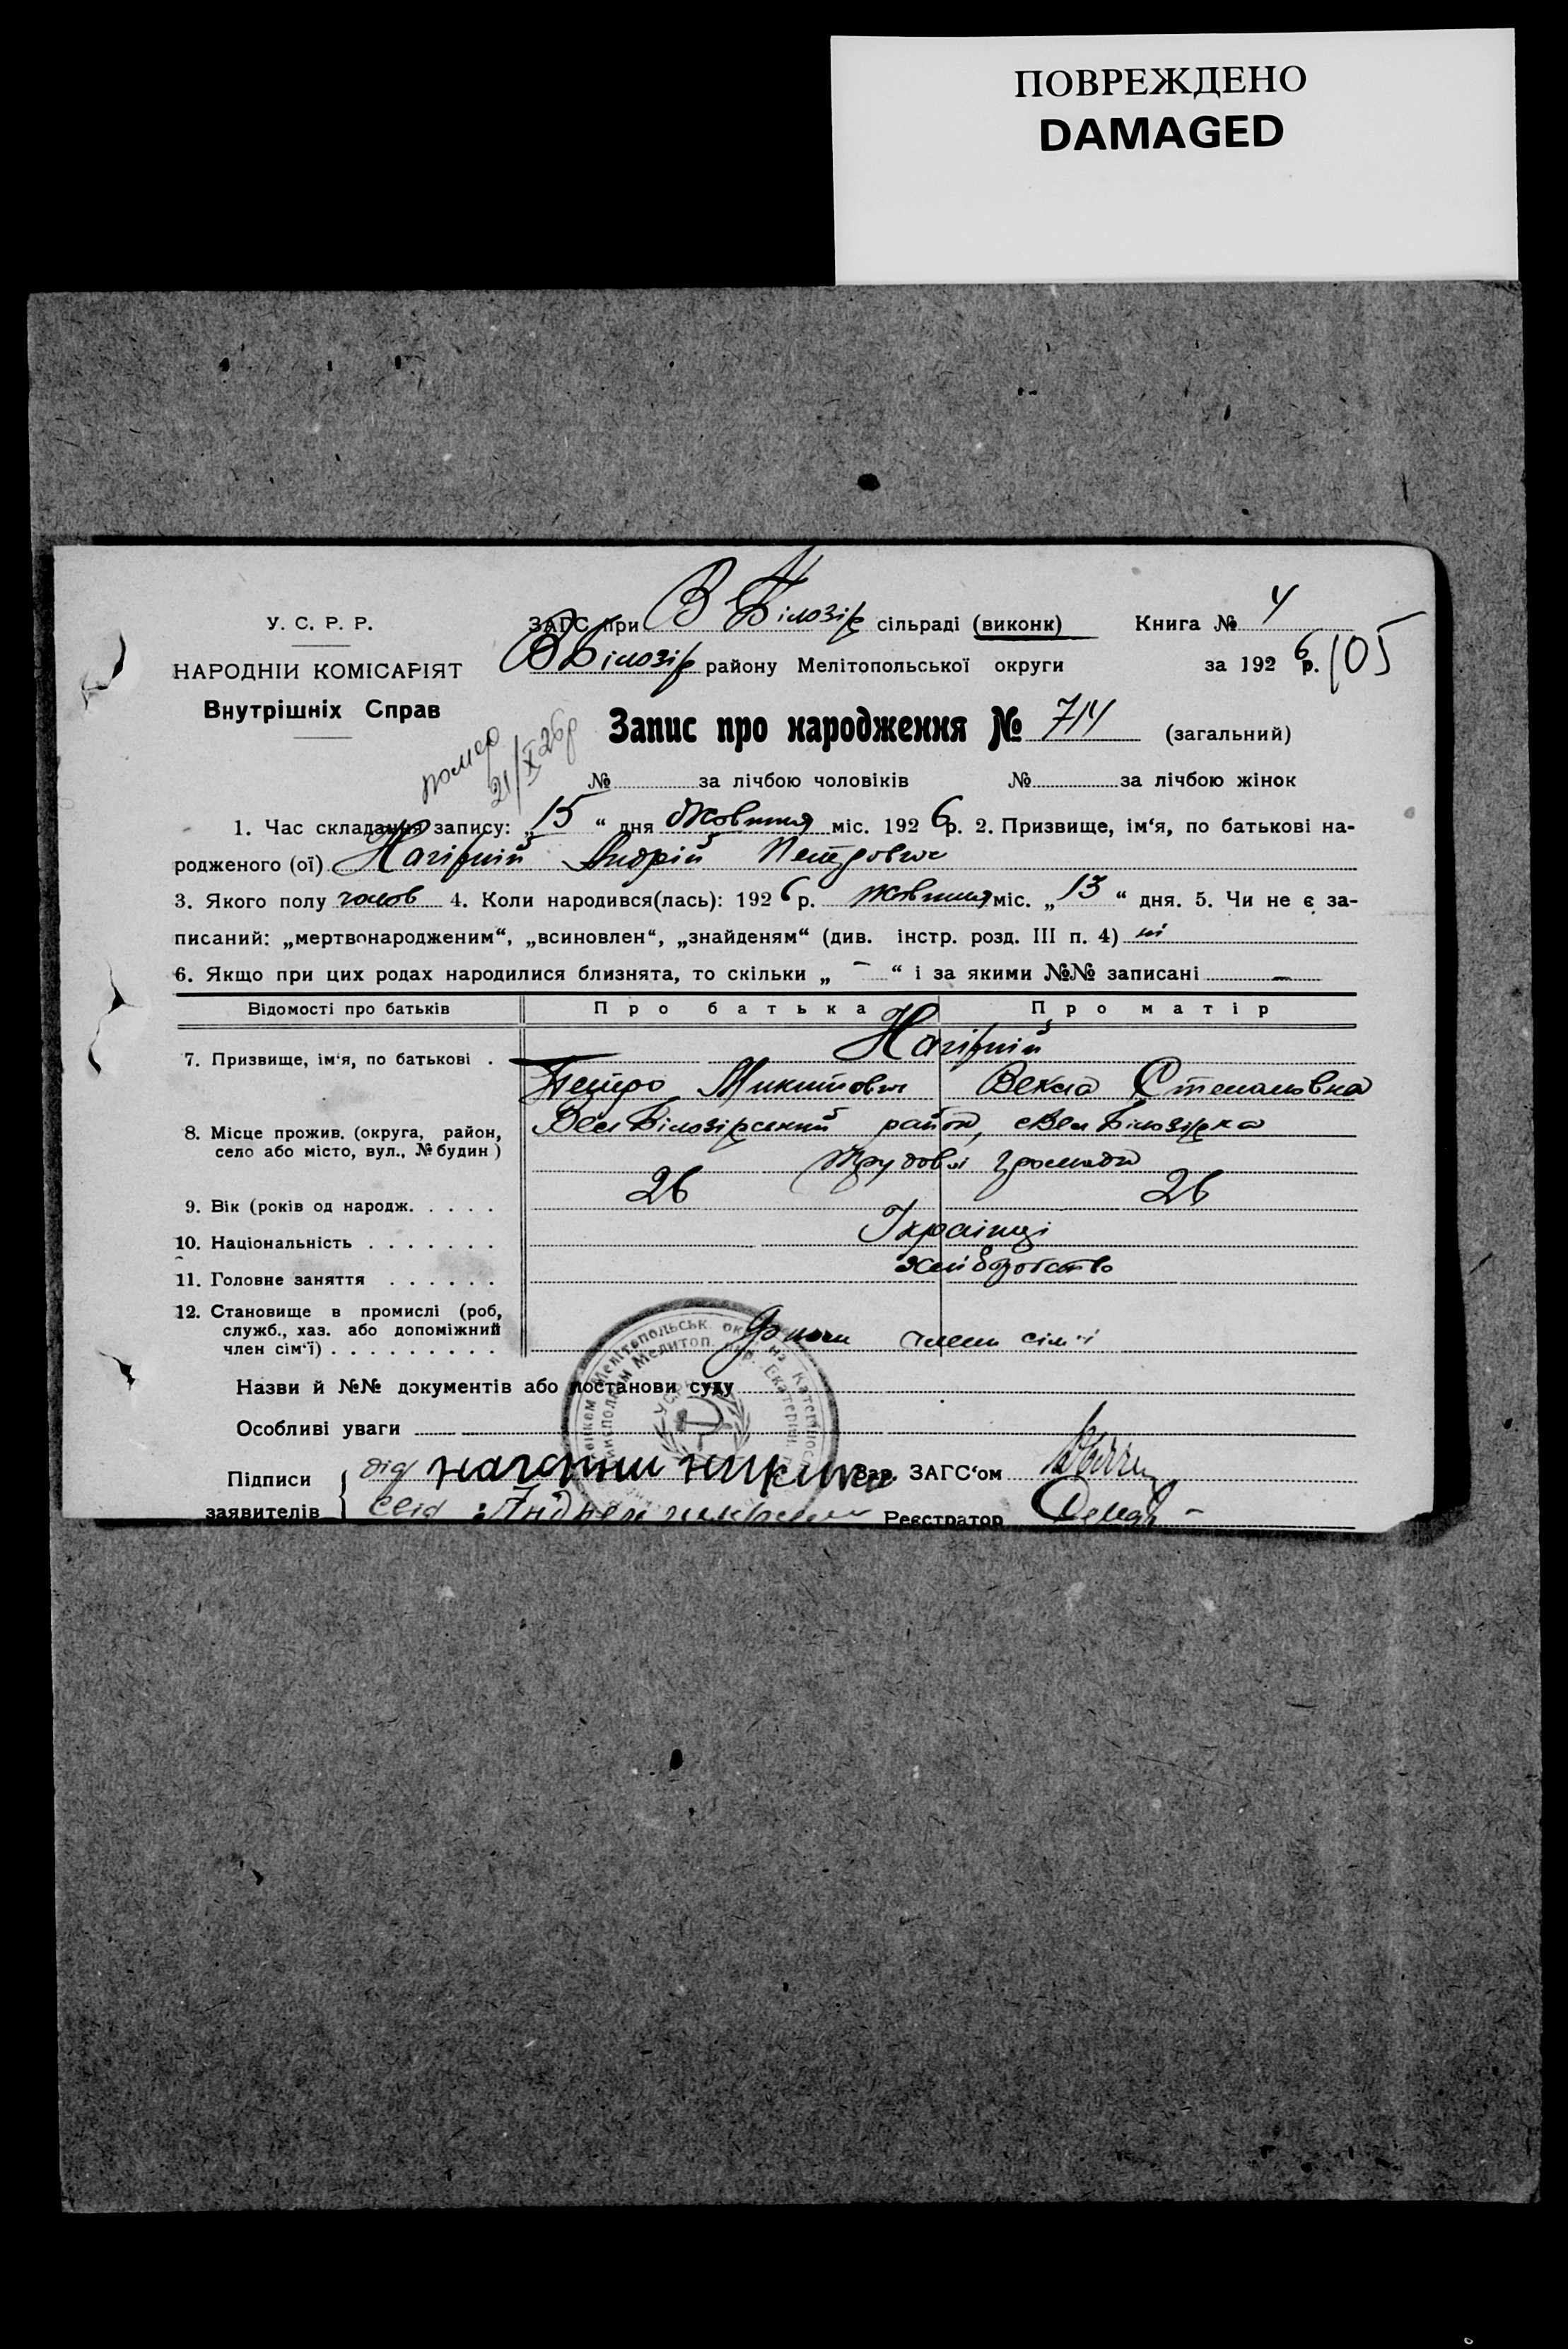 ПОВРЕЖДЕНО
DAMAGED
У. С. Р. Р.
НАРОДНІЙ КОМІСАРІЯТ
Внутрішніх Справ
ЗАГС при В Білозір сільраді (виконк) Книга № 4
В Білозір району Мелітопольської округи за 1926 р. 105
Запис про народження № 714 (загальний)
помер
21/X 26р
№ за лічбою чоловіків № за лічбою жінок
1. Час складання запису: „15“ дня Жовтня міс. 1926р. 2. Призвище, ім‘я, по батькові на-
родженого (ої) Нагірний Андрій Петрович
3. Якого полу чолов 4. Коли народився(лась): 1926р. жовтня міс. „13“ дня. 5. Чи не є за-
писаний: „мертвонародженим“, „всиновлен“, „знайденям“ (див. інстр. розд. III п. 4) ні
6. Якщо при цих родах народилися близнята, то скільки „ – “ і за якими №№ записані –
Відомості про батьків Про батька Про матір
7. Призвище, ім‘я, по батькові . Нагірний
Петро Микитович Векла Степановна
8. Місце прожив. (округа, район, село або місто, вул., № будин) Вел Білозірський район, с Вел Білозірка
Трудові громади
9. Вік (років од народж. . . . . 26 26
10. Національність . . . . . . . Українці
11. Головне заняття . . . . . . хліборобство
12. Становище в промислі (роб,
служб., хаз. або допоміжний
член сім‘ї) . . . . . . . . . члени сім‘ї
Назви й №№ документів або постанови суду
Особливі уваги
Підписи дід нагорний никита Зав. ЗАГС‘ом
заявителів Реєстратор
УСРР